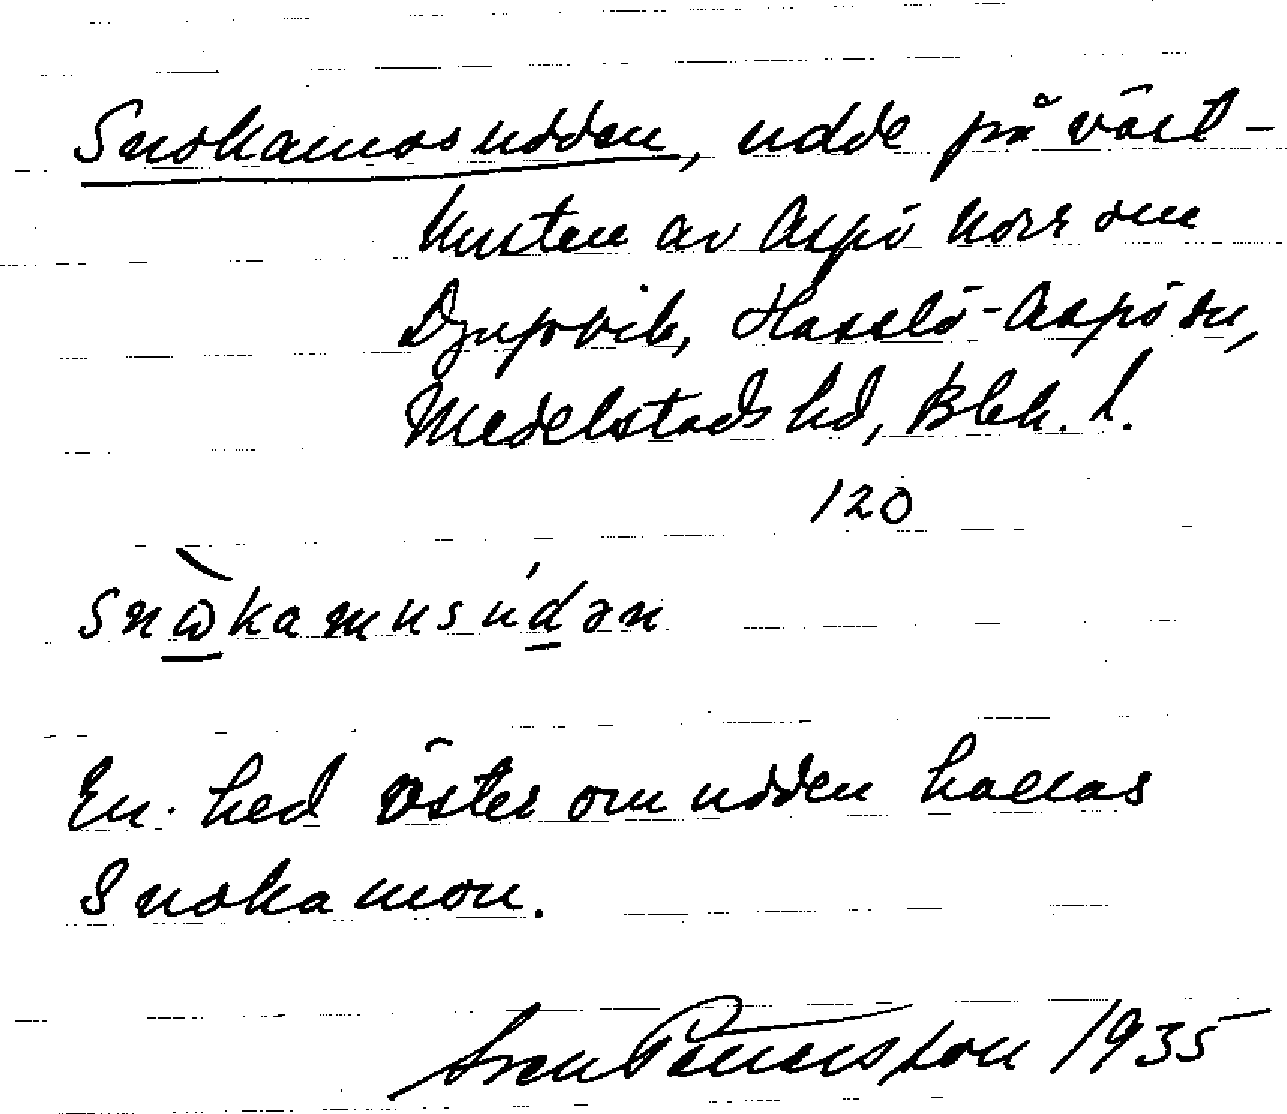 Snokamosudden, udde på väst-
kusten av Aspö norr om
Djupvik, Hasslö-Aspö sn,
Medelstads hd, Blek. l.
120
Snὼkamusúdən
En hed öster om udden kallas
Snokamon.
Sven Benson 1935